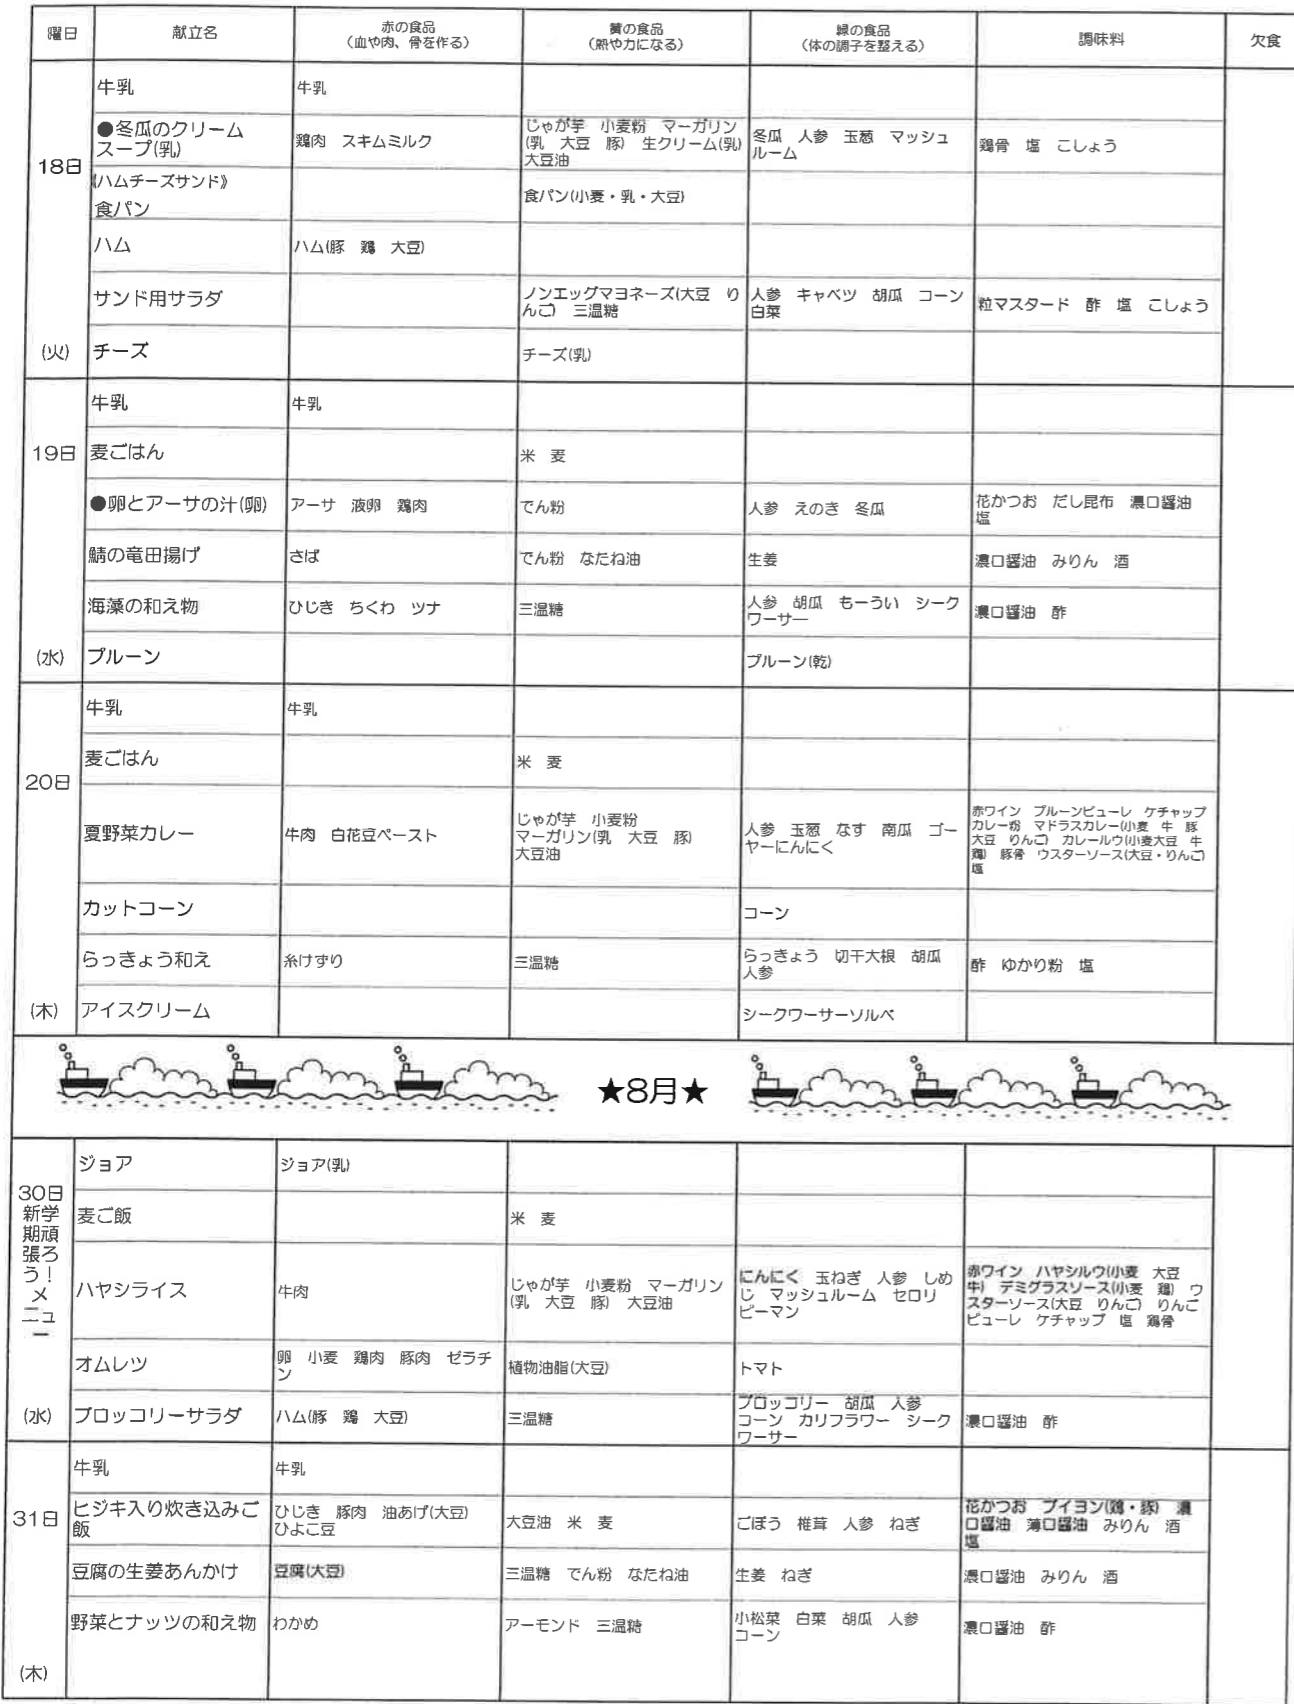 曜日 献立名 赤の食品 黄の食品 緑の食品 調味料 欠食
(血や肉、骨を作る) (熱や力になる) (体の調子を整える)
18日
(火)
牛乳 牛乳
●冬瓜のクリーム
スープ(乳)
鶏肉 スキムミルク
じゃが芋 小麦粉 マーガリン
(乳 大豆 豚) 生クリーム(乳)
大豆油
冬瓜 人参 玉葱 マッシュ
ルーム
鶏骨 塩 こしょう
《ハムチーズサンド》
食パン
食パン(小麦・乳・大豆)
ハム ハム(豚 鶏 大豆)
サンド用サラダ
ノンエッグマヨネーズ(大豆 り
んご) 三温糖
人参 キャベツ 胡瓜 コーン
白菜
粒マスタード 酢 塩 こしょう
チーズ チーズ(乳)
19日
(水)
牛乳 牛乳
麦ごはん 米 麦
●卵とアーサの汁(卵) アーサ 液卵 鶏肉 でん粉 人参 えのき 冬瓜
花かつお だし昆布 濃口醤油
塩
鯖の竜田揚げ さば でん粉 なたね油 生姜 濃口醤油 みりん 酒
海藻の和え物 ひじき ちくわ ツナ 三温糖
人参 胡瓜 もーうい シーク
ワーサー
濃口醤油 酢
プルーン プルーン(乾)
20日
(木)
牛乳 牛乳
麦ごはん 米 麦
夏野菜カレー 牛肉 白花豆ペースト
じゃが芋 小麦粉
マーガリン(乳 大豆 豚)
大豆油
人参 玉葱 なす 南瓜 ゴー
ヤーにんにく
赤ワイン プルーンピューレ ケチャップ
カレー粉 マドラスカレー(小麦 牛 豚
大豆 りんご) カレールウ(小麦大豆 牛
鶏) 豚骨 ウスターソース(大豆・りんご)
塩
カットコーン コーン
らっきょう和え 糸けずり 三温糖
らっきょう 切干大根 胡瓜
人参
酢 ゆかり粉 塩
アイスクリーム シークワーサーソルベ
★8月★
30日
新学
期頑
張ろ
う!
メ
ニュ
ー
(水)
ジョア ジョア(乳)
麦ご飯 米 麦
ハヤシライス 牛肉
じゃが芋 小麦粉 マーガリン
(乳 大豆 豚) 大豆油
にんにく 玉ねぎ 人参 しめ
じ マッシュルーム セロリ
ピーマン
赤ワイン ハヤシルウ(小麦 大豆
牛) デミグラスソース(小麦 鶏) ウ
スターソース(大豆 りんご) りんご
ピューレ ケチャップ 塩 鶏骨
オムレツ
卵 小麦 鶏肉 豚肉 ゼラチ
ン
植物油脂(大豆) トマト
ブロッコリーサラダ ハム(豚 鶏 大豆) 三温糖
ブロッコリー 胡瓜 人参
コーン カリフラワー シーク
ワーサー
濃口醤油 酢
31日
(木)
牛乳 牛乳
ヒジキ入り炊き込みご
飯
ひじき 豚肉 油あげ(大豆)
ひよこ豆
大豆油 米 麦 ごぼう 椎茸 人参 ねぎ
花かつお ブイヨン(鶏・豚) 濃
口醤油 薄口醤油 みりん 酒
塩
豆腐の生姜あんかけ 豆腐(大豆) 三温糖 でん粉 なたね油 生姜 ねぎ 濃口醤油 みりん 酒
野菜とナッツの和え物 わかめ アーモンド 三温糖
小松菜 白菜 胡瓜 人参
コーン
濃口醤油 酢